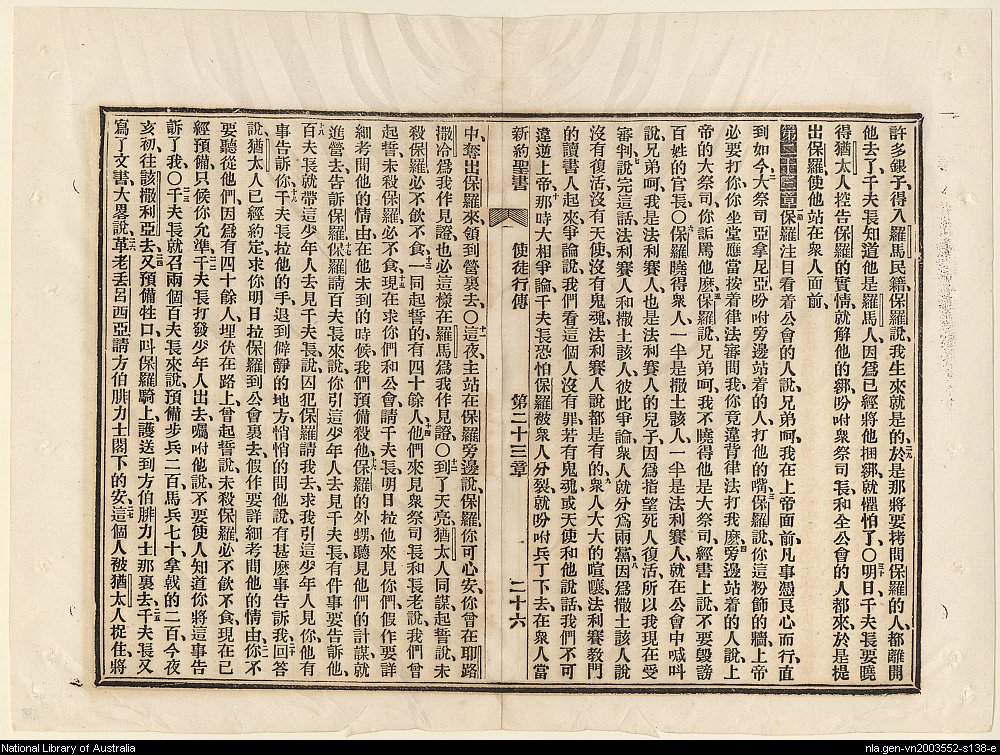 許多銀子、得入羅馬民籍、保羅說、我生來就是的、於是那將要拷問保羅的人、都離開
他去了、千夫長知道他是羅馬人、因爲已經將他捆綁、就懼怕了、〇明日千夫長要曉
得猶太人控告保羅的實情、就解他的綁、吩咐衆祭司長和全公會的人都來、於是提
出保羅、使他站在衆人面前、
第二十三章 保羅注目看着公會的人說、兄弟呵、我在上帝面前、凡事憑良心而行、直
到如今、大祭司亞拿尼亞、吩咐旁邊站着的人打他的嘴、保羅說、你這粉飾的牆、上帝
必要打你、你坐堂應當按着律法審問我、你竟違背律法打我麽、旁邊站着的人說、上
帝的大祭司你詬罵他麽、保羅說、兄弟呵、我不曉得他是大祭司、經書上說、不要毀謗
百姓的官長、〇保羅曉得衆人、一半是撒土該人、一半是法利賽人、就在公會中喊叫
說、兄弟呵、我是法利賽人、也是法利賽人的兒子、因爲指望死人復活、所以我現在受
審判、說完這話、法利賽人和撒土該人、彼此爭論、衆人就分爲兩黨、因爲撒土該人說
沒有復活、沒有天使、沒有鬼魂、法利賽人說都是有的、衆人大大的喧嚷、法利賽教門
的讀書人起來爭論說、我們看這個人沒有罪、若有鬼魂或天使和他說話、我們不可
違逆上帝、那時大相爭論、千夫長恐怕保羅被衆人分裂、就吩咐兵丁下去、在衆人當
新約聖書 使徒行傳 第二十三章 二十六
中、奪出保羅來、領到營裏去、〇這夜、主站在保羅旁邊說、保羅你可心安、你曾在耶路
撒冷爲我作見證、也必這樣在羅馬爲我作見證、〇到了天亮、猶太人同謀起誓說、未
殺保羅、必不飲不食、一同起誓的有四十餘人、他們來見衆祭司長和長老說、我們曾
起誓、未殺保羅、必不食、現在求你們和公會請千夫長、明日拉他來見你們、假作要詳
細考問他的情由、在他未到的時候、我們預備殺他、保羅的外甥、聽見他們的計謀、就
進營去、告訴保羅、保羅請百夫長來說、你引這少年人去見千夫長、有件事要告訴他、
百夫長就帶這少年人去見千夫長說、囚犯保羅請我去、求我引這少年人見你、他有
事告訴你、千夫長拉他的手、退到僻靜的地方、悄悄的問他說、有甚麽事告訴我、回答
說、猶太人已經約定、求你明日拉保羅到公會裏去、假作要詳細考問他的情由、你不
要聽從他們、因爲有四十餘人、埋伏在路上、曾起誓說、未殺保羅、必不飲不食、現在已
經預備、只候你允準、千夫長打發少年人出去、囑咐他說、不要使人知道你將這事告
訴了我、〇千夫長就召兩個百夫長來說、預備步兵二百、馬兵七十、拿戟的二百、今夜
亥初往該撒利亞去、又預備牲口、叫保羅騎上、護送到方伯腓力士那裏去、千夫長又
寫了文書、大畧說、革老丟呂西亞請方伯腓力士閣下的安、這個人被猶太人捉住、將
National Library of Australia
nla.gen-vn2003552-s138-e